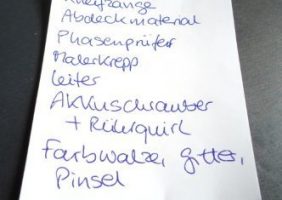 Kneifzange
Abdeckmaterial
Phasenprüfer
Malerkrepp
Leiter
Akkuschrauber
+ Rührquirl
Farbwalze, gitter,
Pinsel